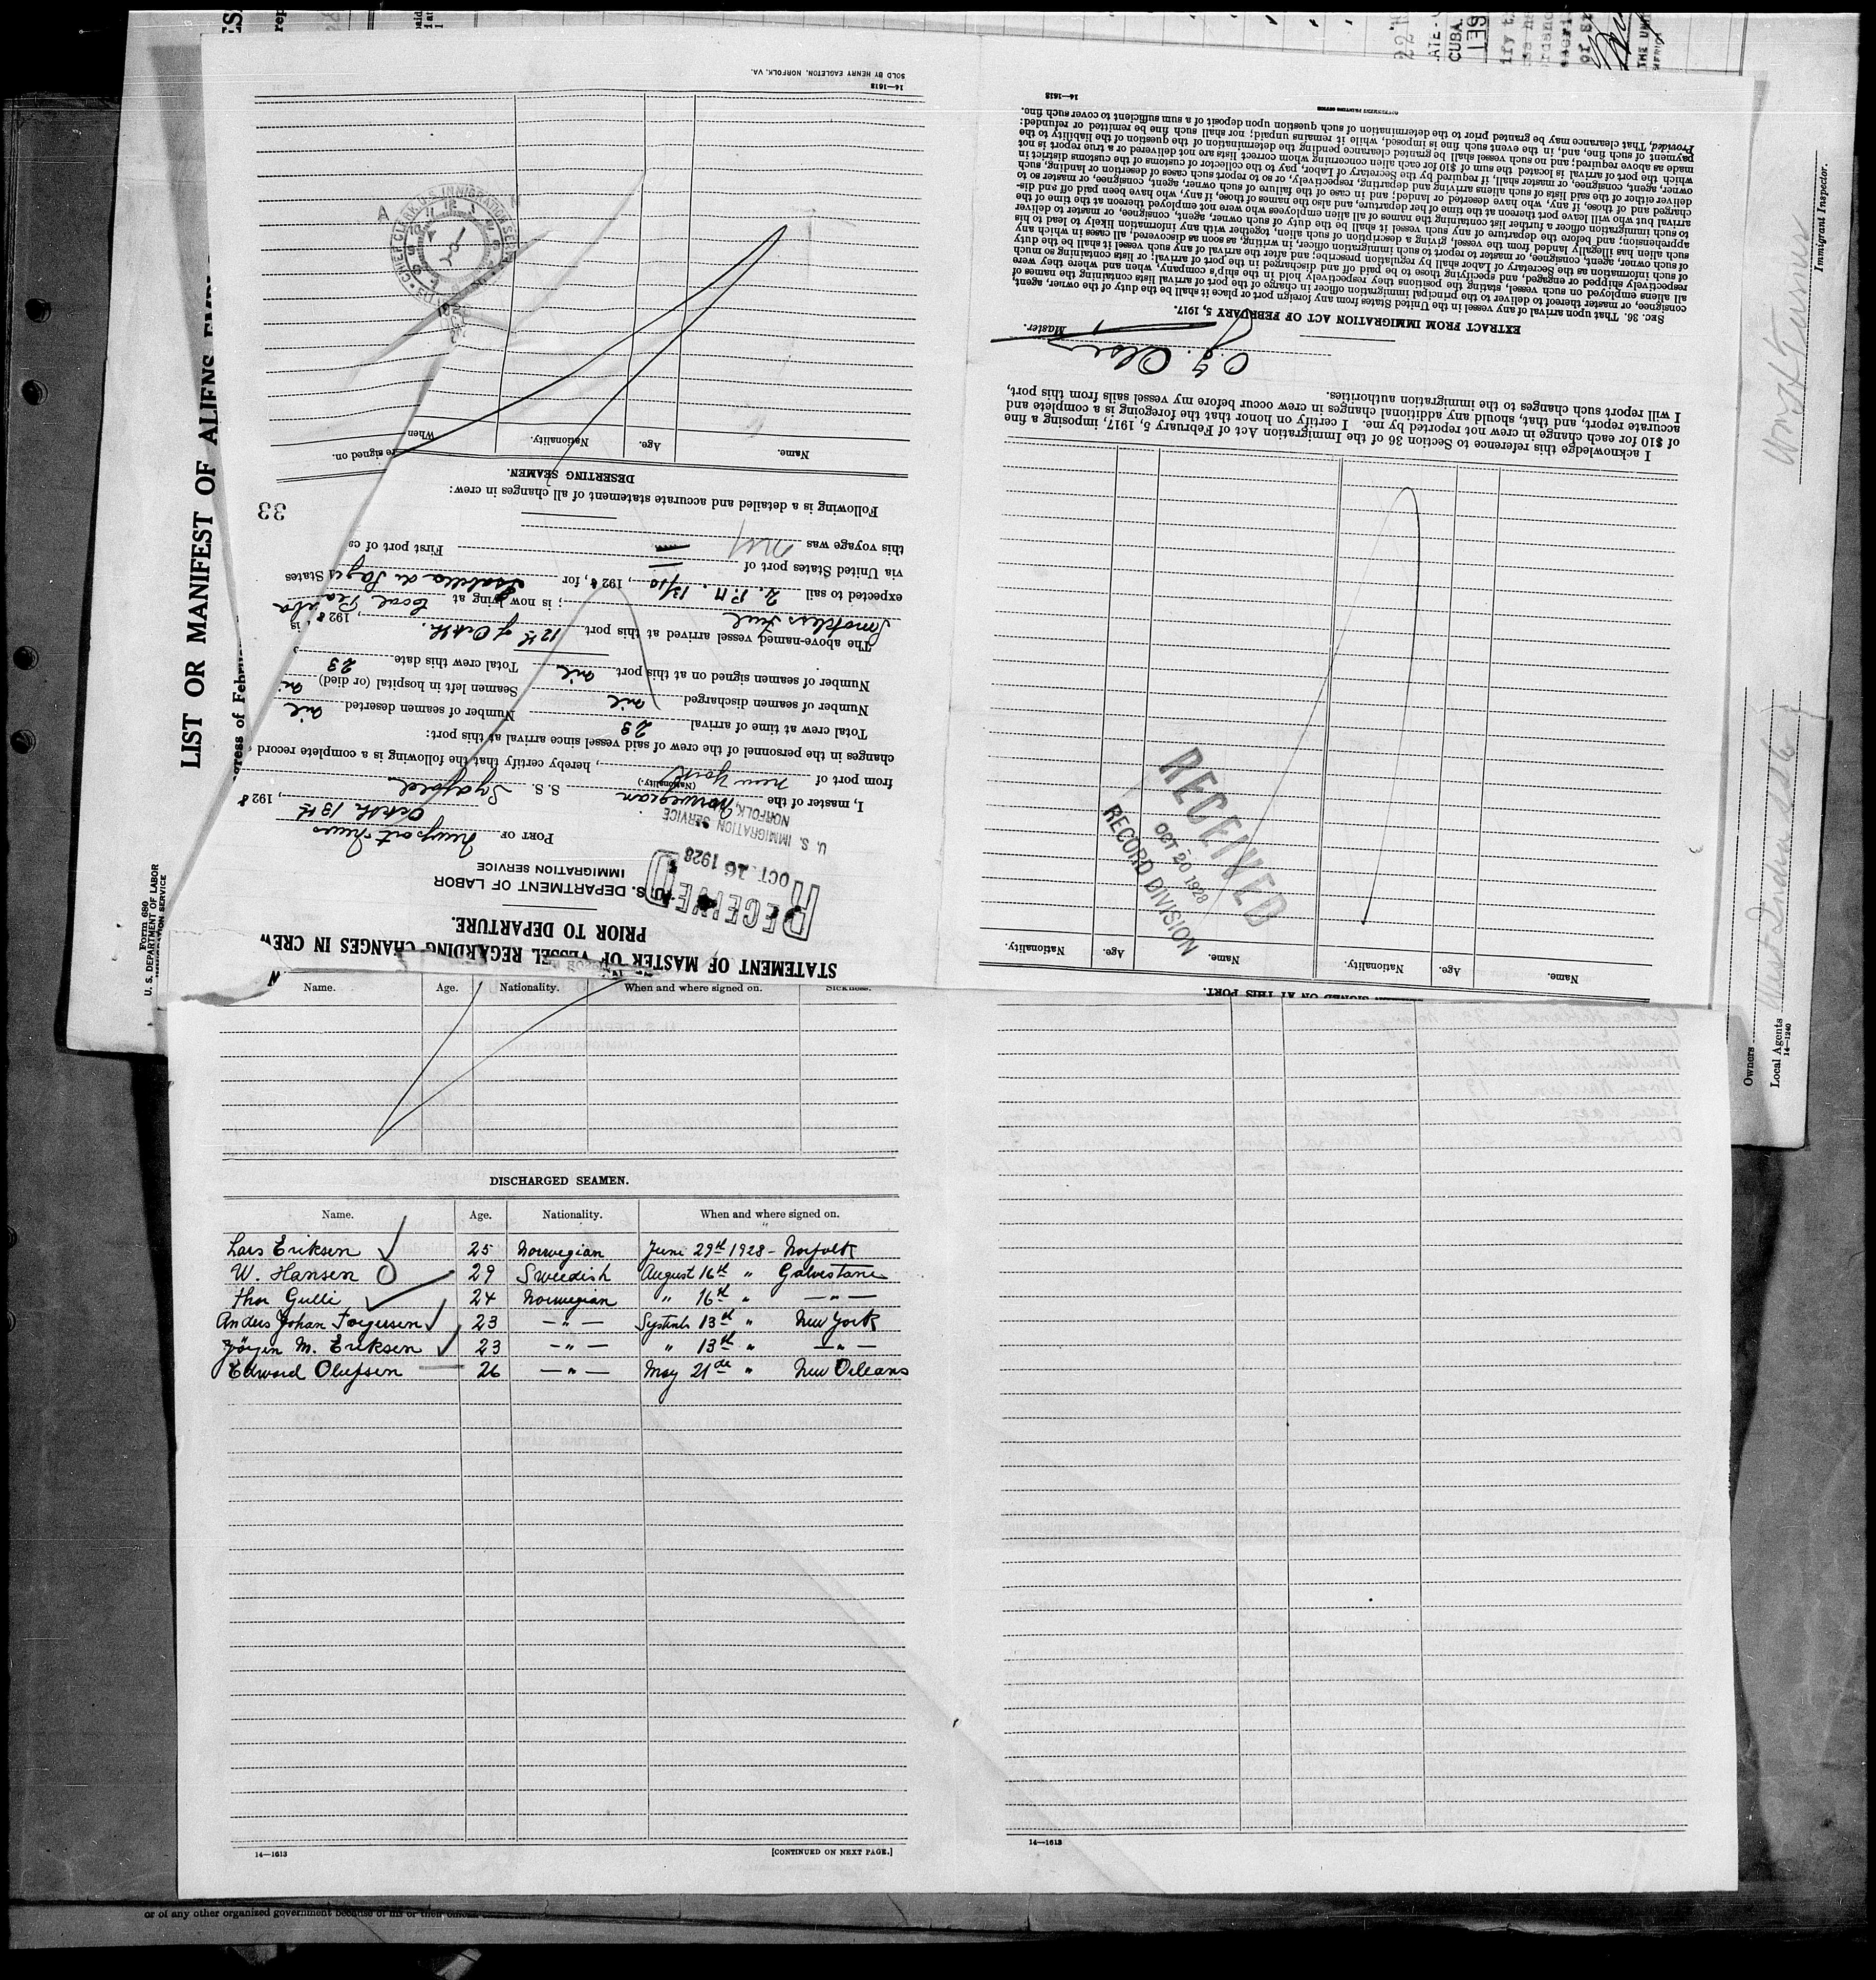 LIST OR MANIFEST OF ALIENS
Form 680
U. S. DEPARTMENT OF LABOR
IMMIGRATION SERVICE
STATEMENT OF MASTER OF VESSEL REGARDING CHANGES IN CREW
PRIOR TO DEPARTURE.
U. S. DEPARTMENT OF LABOR
IMMIGRATION SERVICE
RECEIVED
OCT. 16 1928
U. S. IMMIGRATION SERVICE
NORFOLK,
PORT OF Newport News
Octbr. 13th, 1928
I, master of the Norwegian S. S.
(Nationality.)
from port of New York, hereby certify that the following is a complete record
changes in the personnel of the crew of said vessel since arrival at this port:
Total crew at time of arrival 23 Number of seamen deserted nil
Number of seamen discharged nil Seamen left in hospital (or died)
Number of seamen signed on at this port nil Total crew this date 23
The above-named vessel arrived at this port 12th of Octbr., 1928
Smokless Fuel; is now lying at
expected to sail 2. P.M. 13/10, 1928, for Isabela de Sagua States
via United States port of First port of
this voyage was
33
Following is a detailed and accurate statement of all changes in crew:
DESERTING SEAMEN.
Name. Age. Nationality. When signed on.
CHIEF CLERK U. S. IMMIGRATION
14—1618
SOLD BY HENRY EAGLETON, NORFOLK, VA.
SIGNED ON AT THIS PORT.
Name. Age. Nationality. Name. Age. Nationality.
RECEIVED
OCT 20 1928
RECORD DIVISION
I acknowledge this reference to Section 36 of the Immigration Act of February 5, 1917, imposing a fine
of $10 for each change in crew not reported by me. I certify on honor that the foregoing is a complete and
accurate report, and that, should any additional changes in crew occur before my vessel sails from this port,
I will report such changes to the immigration authorities.
Master.
EXTRACT FROM IMMIGRATION ACT OF FEBRUARY 5, 1917.
SEC. 36. That upon arrival of any vessel in the United States from any foreign port or place it shall be the duty of the owner, agent,
consignee, or master thereof to deliver to the principal immigration officer in charge of the port of arrival lists containing the names of
all aliens employed on such vessel, stating the positions they respectively hold in the ship's company, when and where they were
respectively shipped or engaged, and specifying those to be paid off and discharged in the port of arrival; or lists containing so much
of such information as the Secretary of Labor shall by regulation prescribe; and after the arrival of any such vessel it shall be the duty
of such owner, agent, consignee, or master to report to such immigration officer, in writing, as soon as discovered, all cases in which any
such alien has illegally landed from the vessel, giving a description of such alien, together with any information likely to lead to his
apprehension; and before the departure of any such vessel it shall be the duty of such owner, agent, consignee, or master to deliver
to such immigration officer a further list containing the names of all alien employees who were not employed thereon at the time of the
arrival but who will leave port thereon at the time of her departure, and also the names of those, if any, who have been paid off and dis-
charged and of those, if any, who have deserted or landed; and in case of the failure of such owner, agent, consignee, or master so to
deliver either of the said lists of such aliens arriving and departing, respectively, or so to report such cases of desertion or landing, such
owner, agent, consignee, or master shall, if required by the Secretary of Labor, pay to the collector of customs of the customs district in
which the port of arrival is located the sum of $10 for each alien concerning whom correct lists are not delivered or a true report is not
made as above required; and no such vessel shall be granted clearance pending the determination of the question of the liability to the
payment of such fine, and, in the event such fine is imposed, while it remains unpaid; nor shall such fine be remitted or refunded:
Provided, That clearance may be granted prior to the determination of such question upon deposit of a sum sufficient to cover such fine.
GOVERNMENT PRINTING OFFICE
14—1618
Immigrant Inspector.
Owners
Local Agents
14—1240
Name. Age. Nationality. When and where signed on. Sickness.
DISCHARGED SEAMEN.
Name. Age. Nationality. When and where signed on.
Lars Eriksen 25 Norwegian June 29th 1928 - Norfolk
W. Hansen 29 Swedish August 16th " Galvestane
Thor Gulli 24 Norwegian " 16th " — " —
Anders Johan Torgersen 23 — " — Septmb 13th " New York
Jörgen M. Eriksen 23 — " — " 13th " — " —
Edward Olufsen 26 — " — May 21de " New Orleans
14—1613
[CONTINUED ON NEXT PAGE.]
14—1613
or of any other organized government because of his or their official